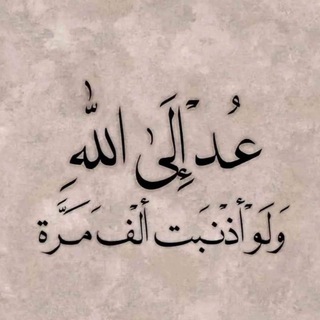 عُد إِلَىٰ اللّٰهِ
وَلَوْ أذْنَبَت ألْف مَرَّة